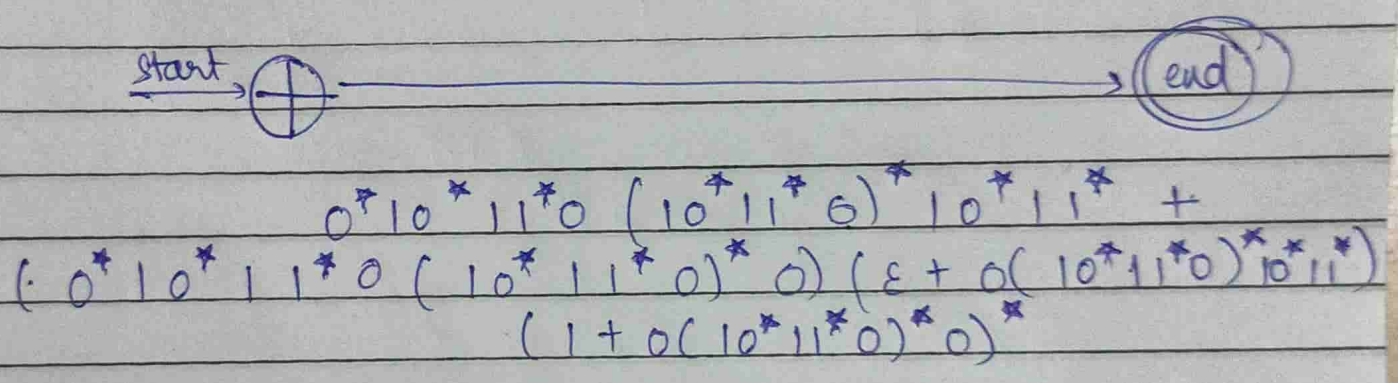 start end
0*10*11*0 (10*11*0)*10*11* +
(0*10*11*0(10*11*0)*0)(ε+0(10*11*0)*10*11*)
(1+0(10*11*0)*0)*